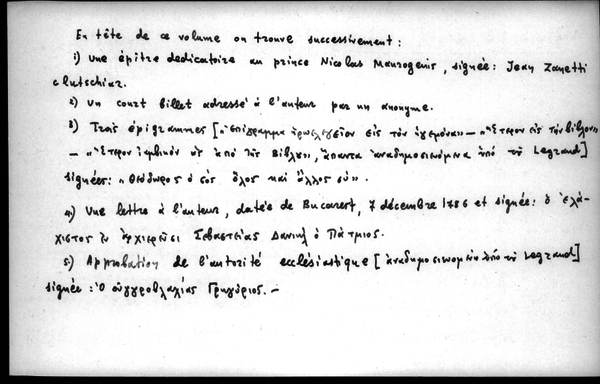 En tête de ce volume on trouve successivement :
1) une épître dedicatoire au prince Nicolas Maurogenis, signée: Jean Zanetti
clutschiar.
2) Un court billet adressé à l'auteur par un anonyme.
3) Trois épigrammes [«Ἐπίγραμμα ἡρωελεγεῖον εἰς τὸν ἡγεμόνα» – «Ἕτερον εἰς τὴν βίβλον»
– «Ἕτερον ἰαμβικὸν ὡς ἀπὸ τῆς Βίβλου», ἅπαντα ἀναδημοσιευόμενα ὑπὸ τοῦ Legrand]
signées: «Θεόδωρος ὁ σὸς ὅλος καὶ ἄλλος σύ».
4) Une lettre à l'auteur, datée de Bucarest, 7 décembre 1786 et signée: ὁ ἐλά-
χιστος ἐν ἀρχιερεῦσι Σεβαστείας Δανιὴλ ὁ Πάτμιος.
5) Approbation de l'autorité ecclésiastique [ἀναδημοσιευομένη ὑπὸ τοῦ Legrand]
signée : Ὁ οὑγγροβλαχίας Γρηγόριος. –